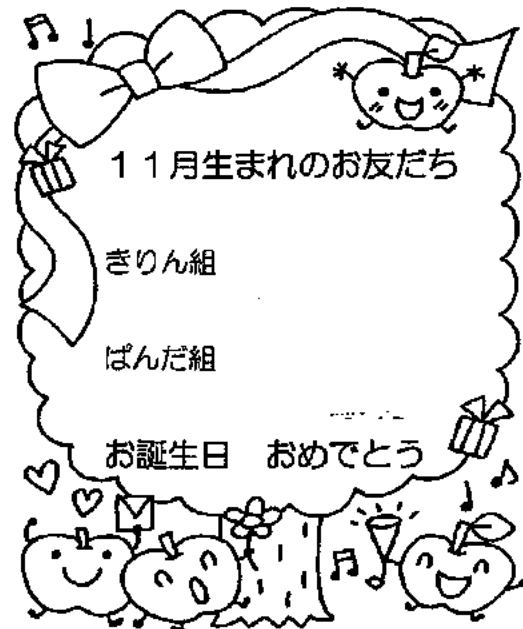 １１月生まれのお友だち
きりん組
ぱんだ組
お誕生日　おめでとう